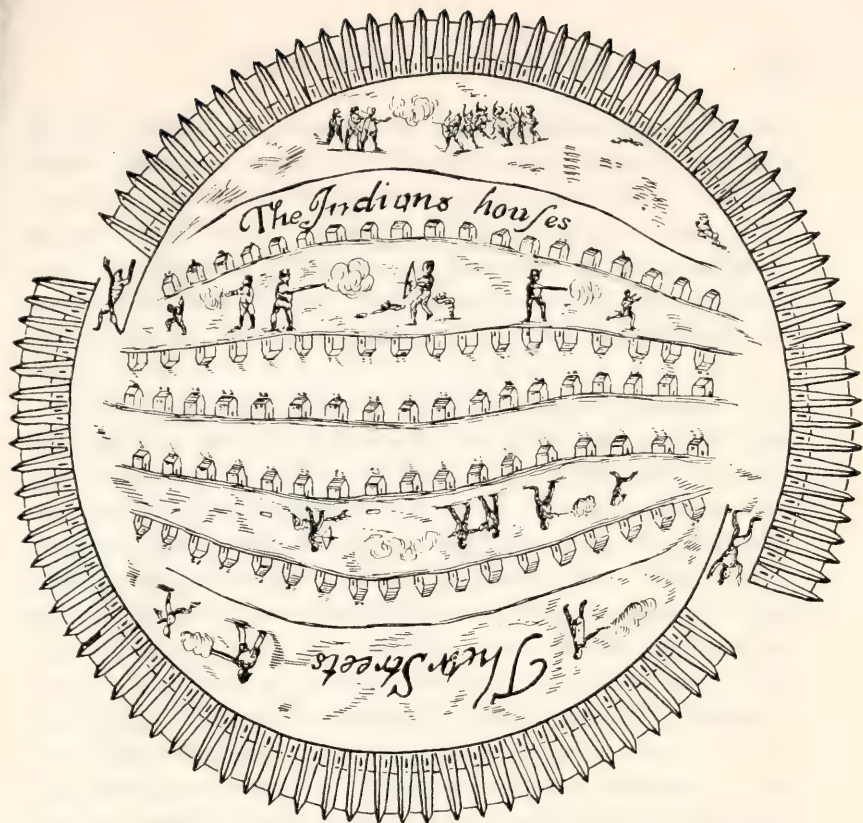 The Indians houſes
Their Streets